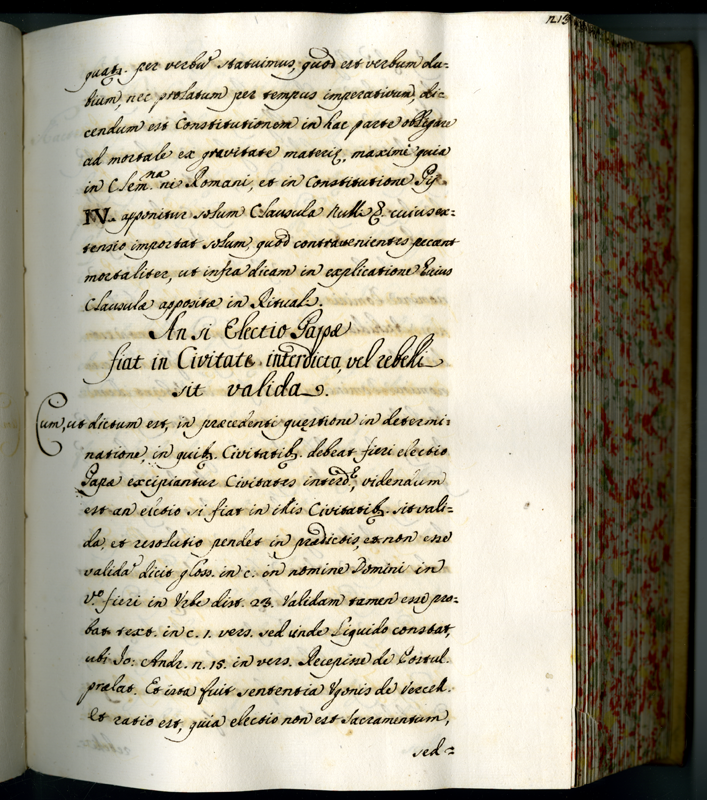 n. 13
quatꝫ. per verbū statuimus, quod est verbum du=
bium, nec prolatum per tempus imperativum, di=
cendum est Constitutionem in hac parte obligare
ad mortale ex gravitate materię, maximè quia
in Clem.na ne Romani, et in Constitutione Pij
IV. apponitur solum Clausula Nulli &. cuius ex=
tensio importat solum quod contravenientes peccant
mortaliter, ut infra dicam in explicatione huius
Clausulæ appositæ in Rituali.
An si Electio Papæ
fiat in Civitate interdicta, vel rebelli
sit valida.
Cum, ut dictum est, in præcedenti quęstione in determi=
natione, in quibꝫ. Civitatibꝫ. debeat fieri electio
Papæ excipiantur Civitates interdę, videndum
est an electio si fiat in illis Civitatibꝫ. sit vali=
da, et resolutio pendet in prædictis, et non esse
validā dicit gloss. in c. in nomine Domini in
V.º fieri in Urbe dist. 23. Validam tamen esse pro=
bat text. in c. 1. vers. sed unde liquido constat,
ubi Io: Andr. n. 15. in vers. Recepine de Postul.
prælat. Et ista fuit sententia Yvonis de Vercell.
et ratio est, quia electio non est Sacramentum,
sed=